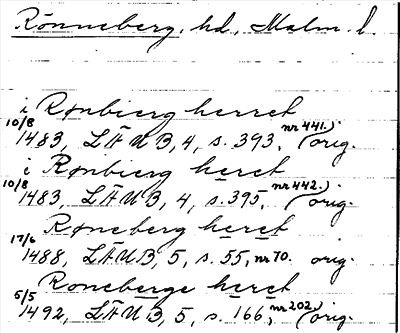 Rönneberg, hd., Malm. l.
i Rønbierg herret
10/8 1483, LÄUB, 4, s. 393, nr 441.) orig.
i Rønbierg heret
10/8 1483, LÄUB, 4, s. 395, nr 442.) orig.
Røneberg heret
17/6 1488, LÄUB, 5, s. 55, nr 70. orig.
Roneberge heret
5/5 1492, LÄUB, 5, s. 166, nr 202.) orig.